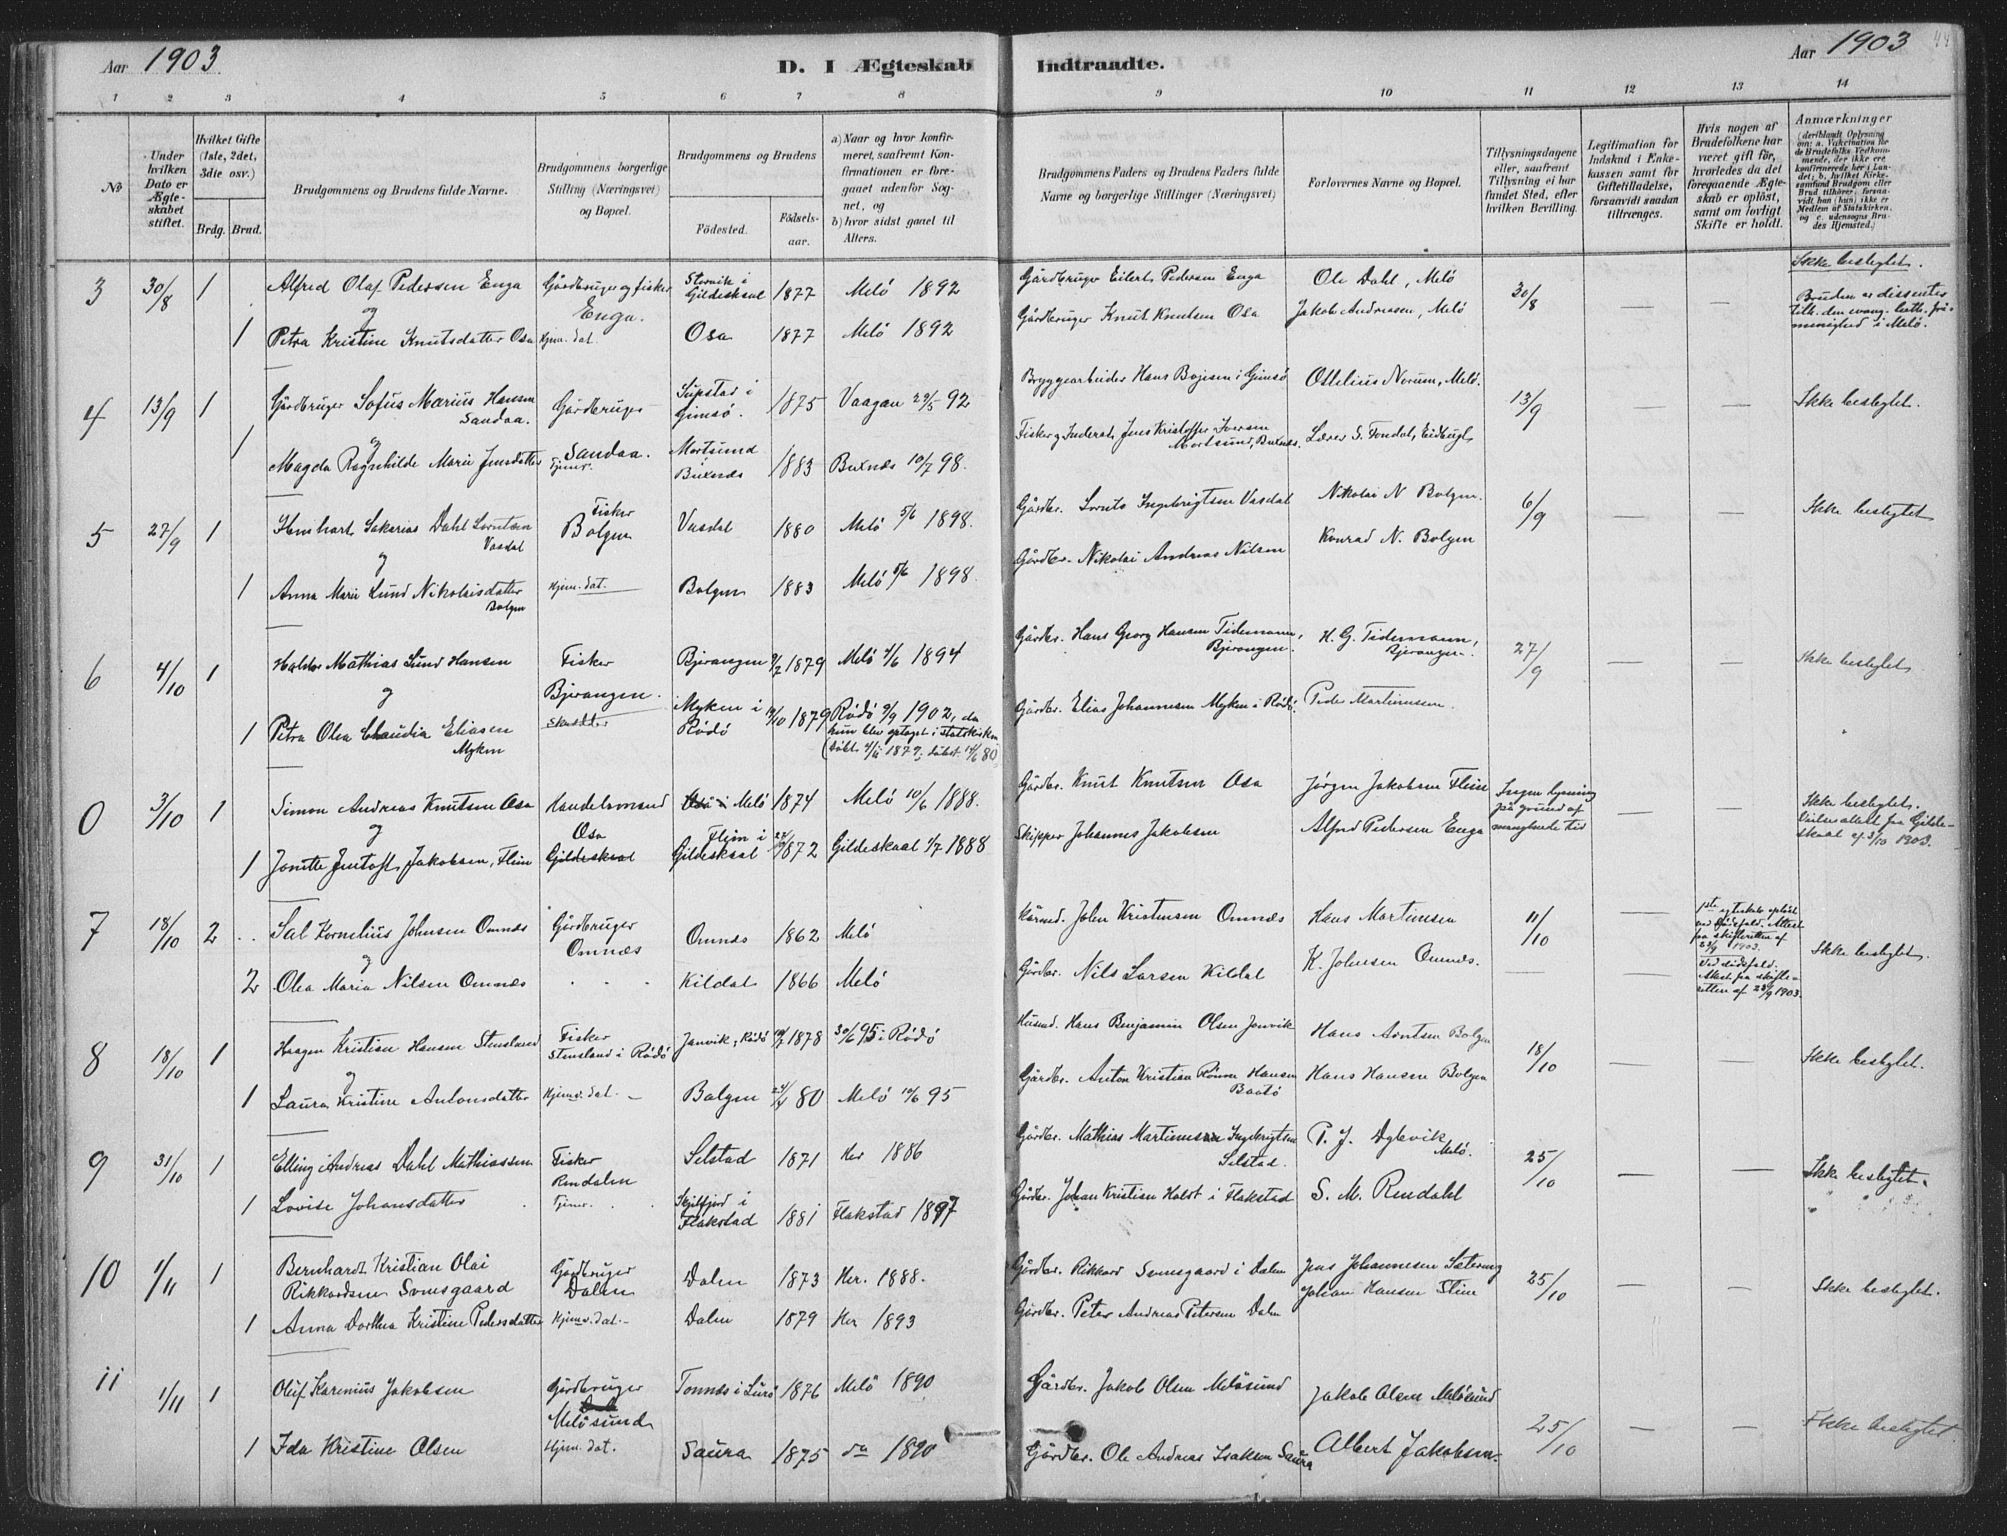 Aar 1903
D. I Ægteskab Indtraadte.
Aar 1903
1 2 3 4 5 6 7 8 9 10 11 12 13 14
No
Under hvilken Dato er Ægteskabet stiftet.
Hvilket Gifte (1ste, 2det, 3die osv.)
Brdg. Brud.
Brudgommens og Brudens fulde Navne.
Brudgommens borgerlige Stilling (Næringsvei) og Bopæl.
Brudgommens og Brudens
Födested.
Födsels-aar.
a) Naar og hvor konfirmeret, saafremt Konfirmationen er foregaaet udenfor Sognet, og
b) hvor sidst gaaet til Alters.
Brudgommens Faders og Brudens Faders fulde Navne og borgerlige Stillinger (Næringsvei)
Forlovernes Navne og Bopæl.
Tillysningsdagene eller, saafremt Tillysning ei har fundet Sted, efter hvilken Bevilling.
Legitimation for Indskud i Enkekassen samt for Giftetilladelse, forsaavidt saadan tiltrænges.
Hvis nogen af Brudefolkene har været gift før, hvorledes da det foregaaende Ægteskab er opløst, samt om lovligt Skifte er holdt.
Anmærkninger
3 30/8 1 Alfred Olaf Pedersen Enga Gårdbruger og fisker Enga. Storvik i Gildeskaal 1877 Melö 1892 Gårdbruger Eilert Pedersen Enga Ole Dahl, Melö 30/8 — — Ikke beslegtet.
og
1 Petra Kristine Knutsdatter Osa Hjem. dat. Osa 1877 Melö 1892 Gårdbruger Knut Knutsen Osa Jakob Andreasen, Melö Bruden er dissenter tilh. den evang. luth. frimenighed i Melö.
4 13/9 1 Gårdbruger Sofus Marius Hansen Sandaa. Gårdbruger Sandaa. Gimsø. 1875 Vaagan 29/5 92 Bryggearbeider Hans Bojesen i Gimsö Ottelius Norum, Melö. 13/9 — — Ikke beslegtet.
og
1 Magda Ragnhilde Marie Jensdatter Tjener. Mortsund Buxnæs 1883 Buxnæs 10/7 98. Jens Kristoffer Iversen Mortsund, Buxnæs. Lærer S. Fondal,
5 27/9 1 Sakarias Dahl Lorntsen Vasdal Fisker Bolgen Vasdal 1880 Melö 5/6 1898. Gårdbr. Lornts Ingebrigtsen Vasdal Nikolai N Bolgen. 6/9 — — Ikke beslegtet
og
1 Anna Marie Lund Nikolaisdatter Bolgen Hjem. dat. Bolgen 1883 Melö 5/6 1898. Gårdbr. Nikolai Andreas Nilsen Konrad N. Bolgen
6 4/10 1 Haldor Mathias Lund Hansen Fisker Bjerangen. Bjerangen 1879 Melö 4/6 1894 Gårdbr. Hans Georg Hansen Tidemann, Bjerangen. H. G. Tidemann, Bjerangen. 27/9 — — Ikke beslegtet
og
1 Petra Olea Claudia Eliasen Myken Myken i Rödö 1879 Rödö 9/9 1902, da hun blev optaget i statskirken Gårdbr. Elias Johannesen Myken i Rödö. Peder Martinussen.
0 3/10 1 Simon Andreas Knutsen Osa Handelsmand Osa Melö 1874 Melö 10/6 1888. Gårdbr. Knut Knutsen Osa Jørgen Jakobsen Flein Ingen lysning på grund af manglende tid — Ikke beslegtet.
og
1 Jonette Jentoft Jakobsen, Flein Gildeskaal Flein i Gildeskaal 1872 Gildeskaal 1/7 1888 Skipper Johannes Jakobsen Alfred Pedersen Enga Vielseattest fra Gildeskaal af 3/10 1903.
7 18/10 2 Sal Kornelius Johnsen Omnæs Gårdbruger Omnæs Omnæs 1862 Melö Kårmd. John Kristensen Omnæs Hans Martinsen 11/10 — 1ste egteskab oplöst ved dödsfald. Attest fra skifteretten af 23/9 1903. Ikke beslegtet.
og
2 Olea Maria Nilsen Omnæs Kildal 1866 Melö Gårdbr. Nils Larsen Kildal K. Johnsen Omnæs. — — Ved dödsfald. Attest fra skifteretten af 23/9 1903.
8 18/10 1 Haagen Kristian Hansen Stensland Fisker Stensland i Rödö Janvik, Rödö 1878 30/6 95 i Rödö Husmd. Hans Benjamin Olsen Jonvik Hans Arntsen Bolgen 18/10 — — Ikke beslegtet.
og
1 Laura Kristine Antonsdatter Hjemv. dat. Bolgen 80 Melö 95 Gårdbr. Anton Kristian Rönne Hansen Hans Hansen Bolgen
9 31/10 1 Elling Andreas Dahl Mathiassen Fisker Rendalen Selstad 1871 Her 1886 Gårdbr. Mathias Martinussen Ingebrigtsen Selstad. P. J. Melö. 25/10 — — Ikke beslegtet.
1 Lovise Johansdatter Tjener. Skjelfjord i Flakstad 1881 Flakstad 1897 Gårdbr. Johan Kristian Holst i Flakstad S. M. Rendahl
10 1/11 1 Bernhardt Kristian Olai Rikkardsen Sonesgaard Gårdbruger Dalen Dalen 1873 Her. 1888. Gårdbr. Rikkard Sonesgaard i Dalen Jens Johannesen Sætering 25/10 — — Ikke beslegtet.
1 Anna Dorthea Kristine Pedersdatter Hjemv. dat. Dalen 1879 Her 1893 Gårdbr. Peter Andreas Petersen Dalen Johan Hansen Flein
11 1/11 1 Oluf Karenius Jakobsen Gårdbruger Melösund Tonnes i Lurö 1876 Melö 1890 Gårdbr. Jakob Olsen Melösund Jakob Olsen Melösund 25/10 — — Ikke beslegtet
1 Ida Kristine Olsen Hjem. dat. Saura 1875 do 1890 Gårdbr. Ole Andreas Isaksen Saura Albert Jakobsen.